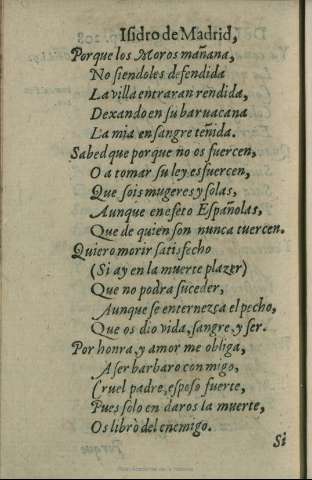 Isidro de Madrid,
Porque los Moros mañana,
No siendoles defendida
La villa entraran rendida,
Dexando en su baruacana
La mia en sangre teñida.
Sabed que porque no os fuercen,
O a tomar su ley esfuercen,
Que sois mugeres y solas,
Aunque en efeto Españolas,
Que de quien son nunca tuercen.
Quiero morir satisfecho
(Si ay en la muerte plazer)
Que no podra suceder,
Aunque se enternezca el pecho,
Que os dio vida, sangre, y ser.
Por honra, y amor me obliga,
A ser barbaro conmigo,
Cruel padre, esposo fuerte,
Pues solo en daros la muerte,
Os librò del enemigo.
Si